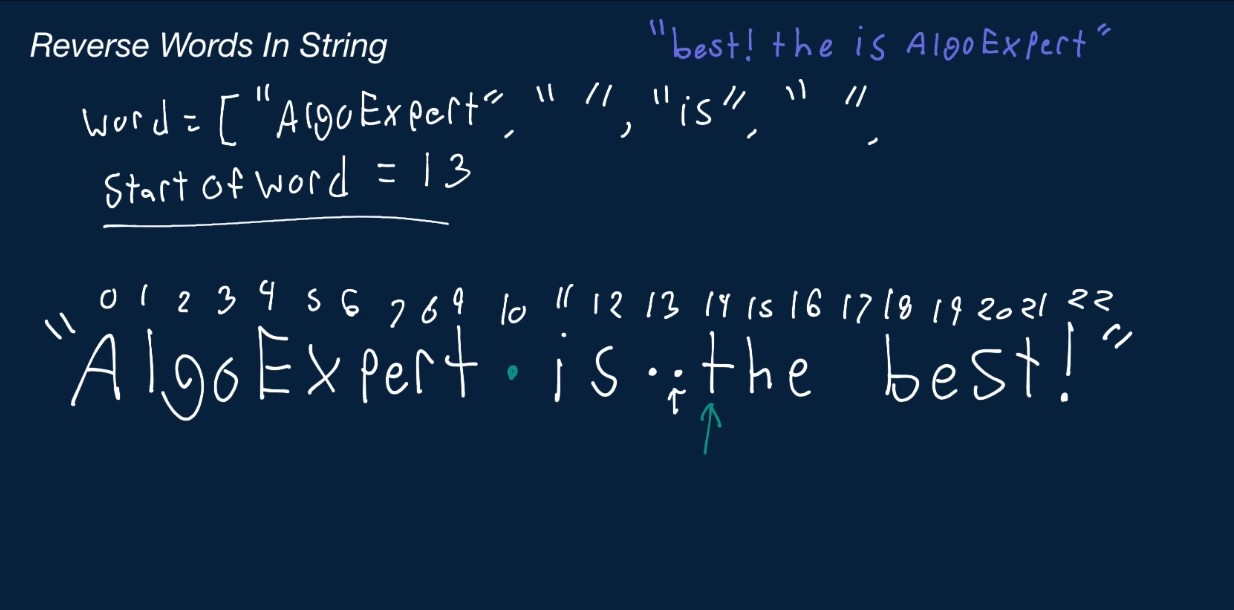 Reverse Words In String
"best! the is AlgoExpert"
word = ["AlgoExpert", " ", "is", " ",
Start of word = 13
0 1 2 3 4 5 6 7 8 9 10 11 12 13 14 15 16 17 18 19 20 21 22
"AlgoExpert · is ··the best!"